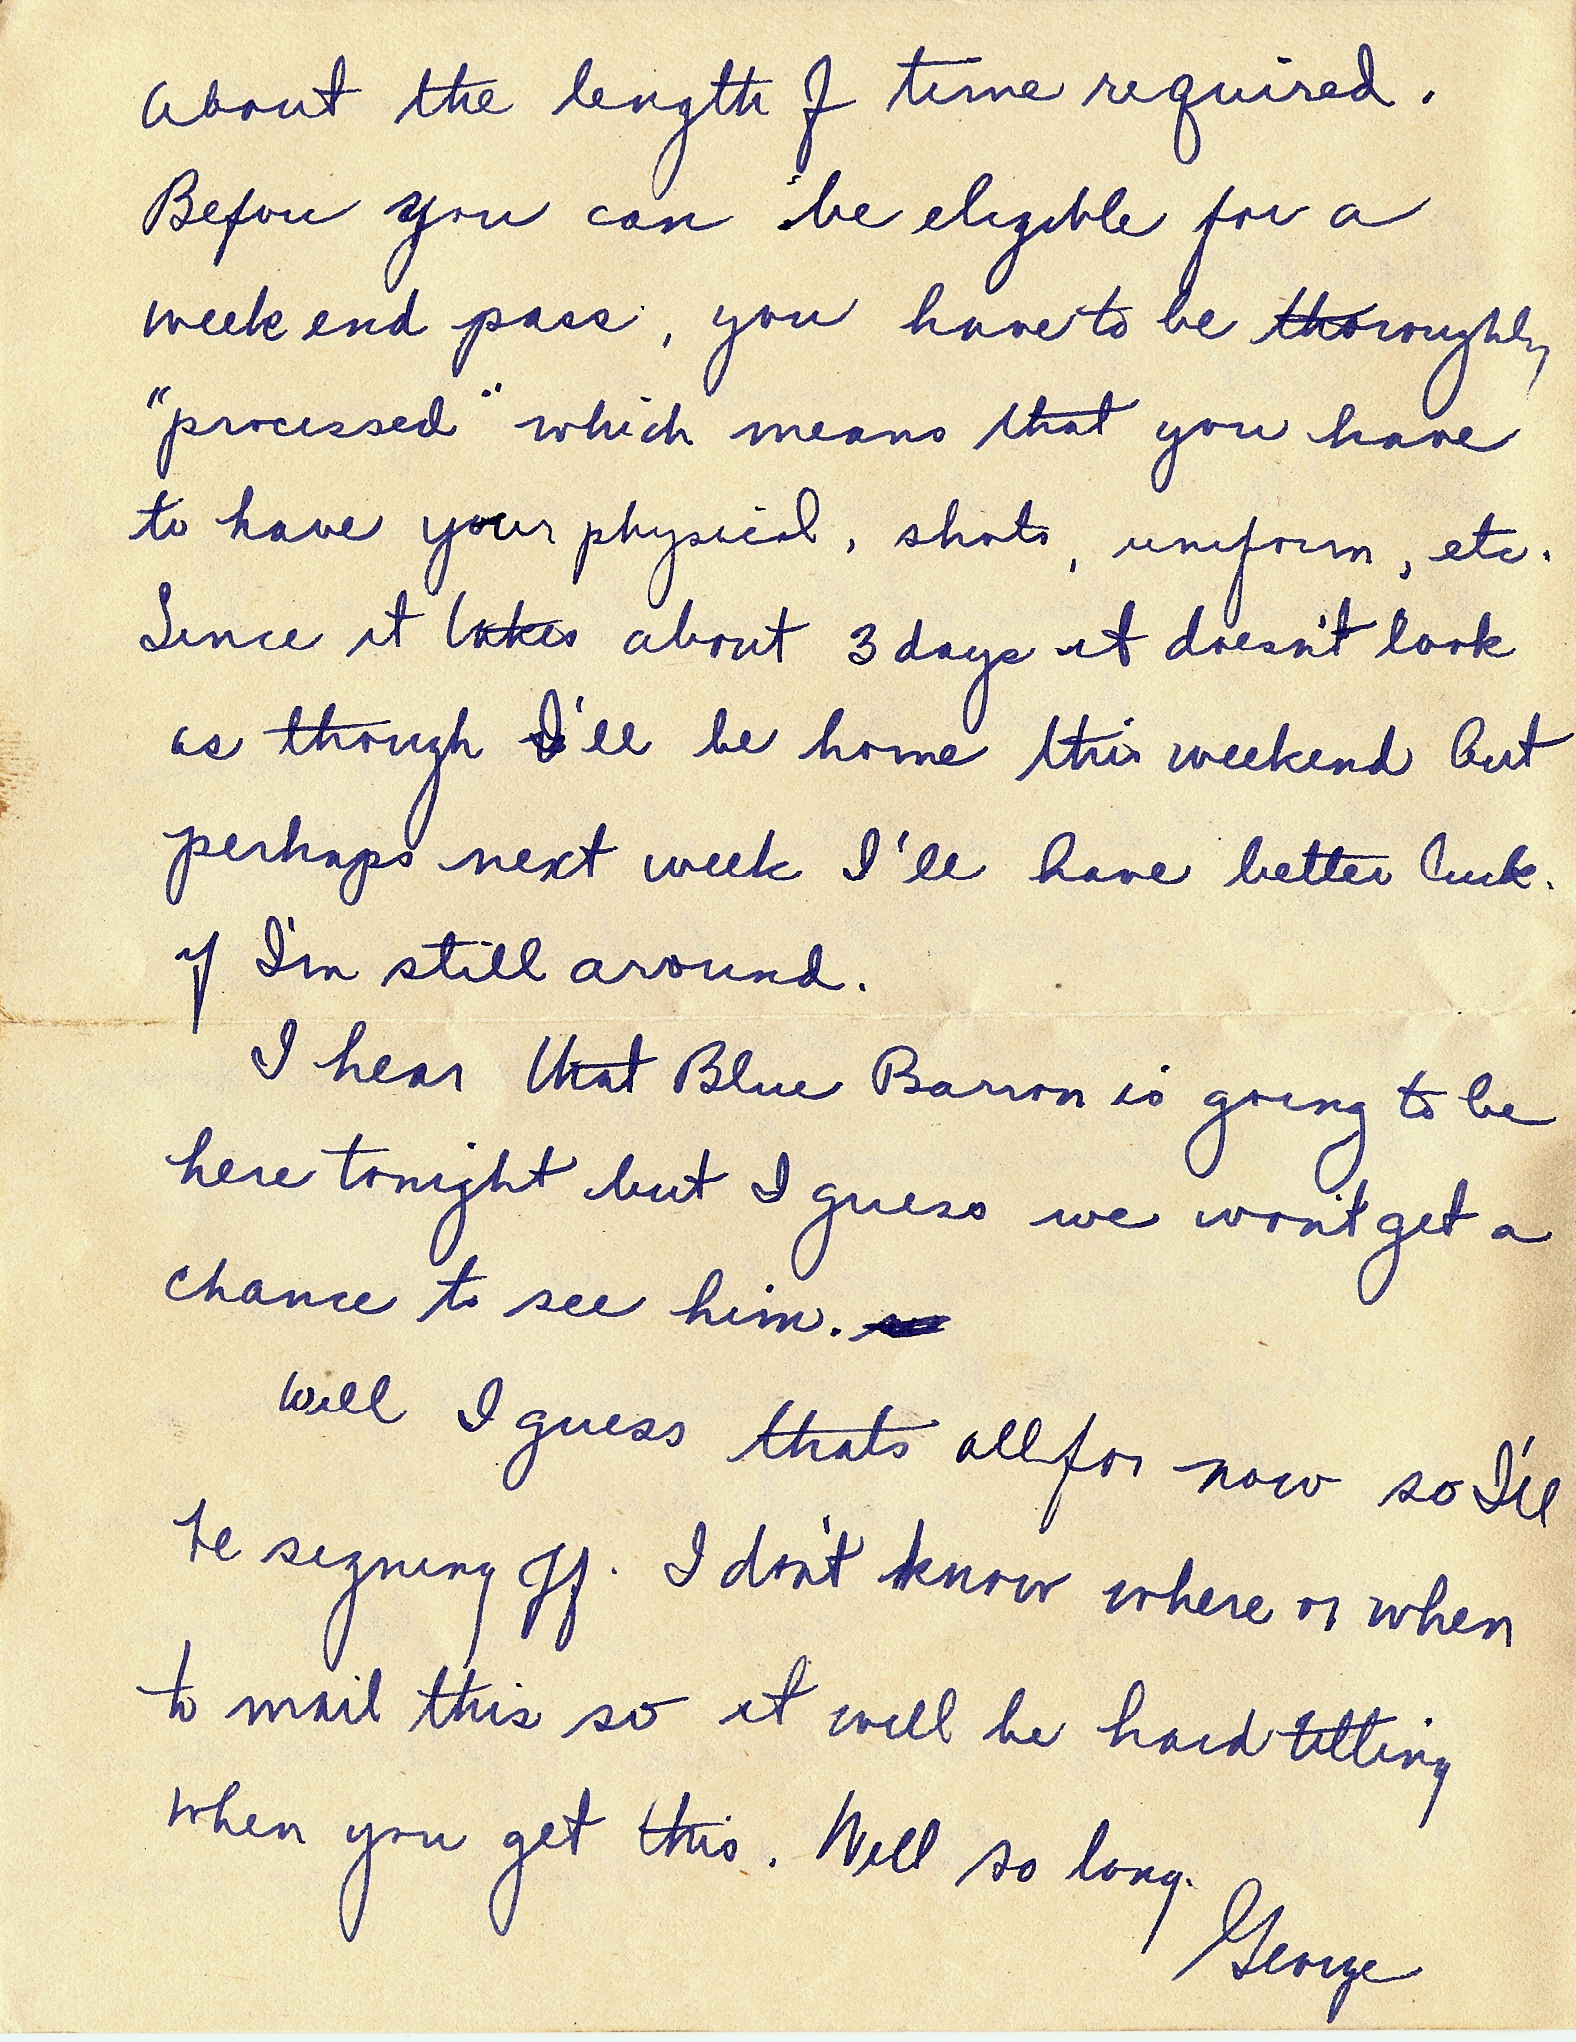 about the length of time required.
Before you can be eligible for a
week end pass, you have to be thoroughly
"processed" which means that you have
to have your physical, shots, uniform, etc.
Since it takes about 3 days it doesn't look
as though I'll be home this weekend but
perhaps next week I'll have better luck.
if I'm still around.
I hear that Blue Barron is going to be
here tonight but I guess we won't get a
chance to see him.
Well I guess thats all for now so I'll
be signing off. I don't know where or when
to mail this so it will be hard telling
when you get this. Well so long.
George